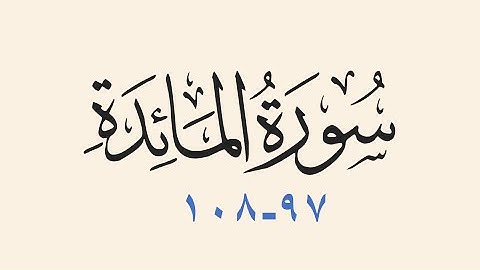 سُورَةُ المَائِدَةِ
٩٧-١٠٨